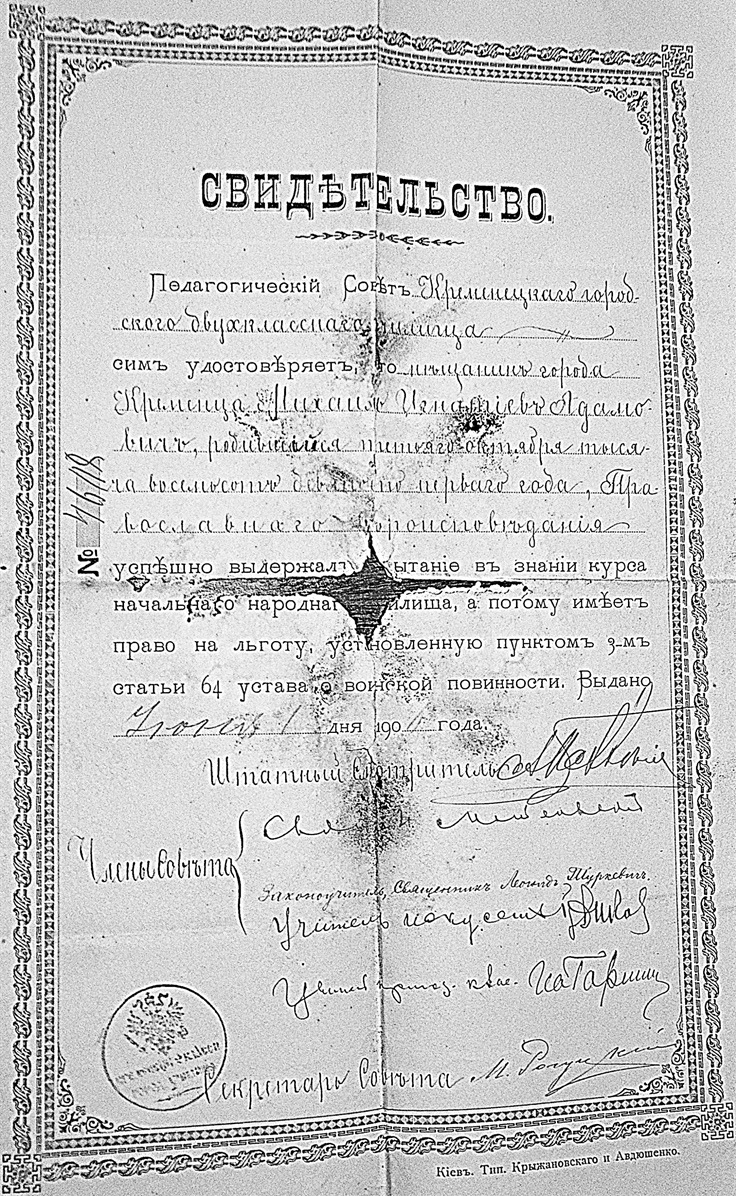 СВИДѢТЕЛЬСТВО.
Педагогическій Совѣтъ Кременецкаго город-
ского двухкласснаго училища
симъ удостовѣряетъ, что мѣщанинъ города
Кременца Михаилъ Игнатіевъ Адамо-
вичъ, родившійся третьяго октября тыся-
ча восемьсотъ девяносто перваго года, Пра-
вославнаго вѣроисповѣданія
№
успѣшно выдержалъ испытаніе въ знаніи курса
начальнаго народнаго училища, а потому имѣетъ
право на льготу, установленную пунктомъ 3-мъ
статьи 64 устава о воинской повинности. Выдано
дня 190 года.
Штатный Смотритель
Члены Совѣта
Законоучитель, Священникъ Леонидъ Туркевичъ.
Учитель
Секретарь Совѣта М.
Кіевъ. Тип. Крыжановскаго и Авдюшенко.